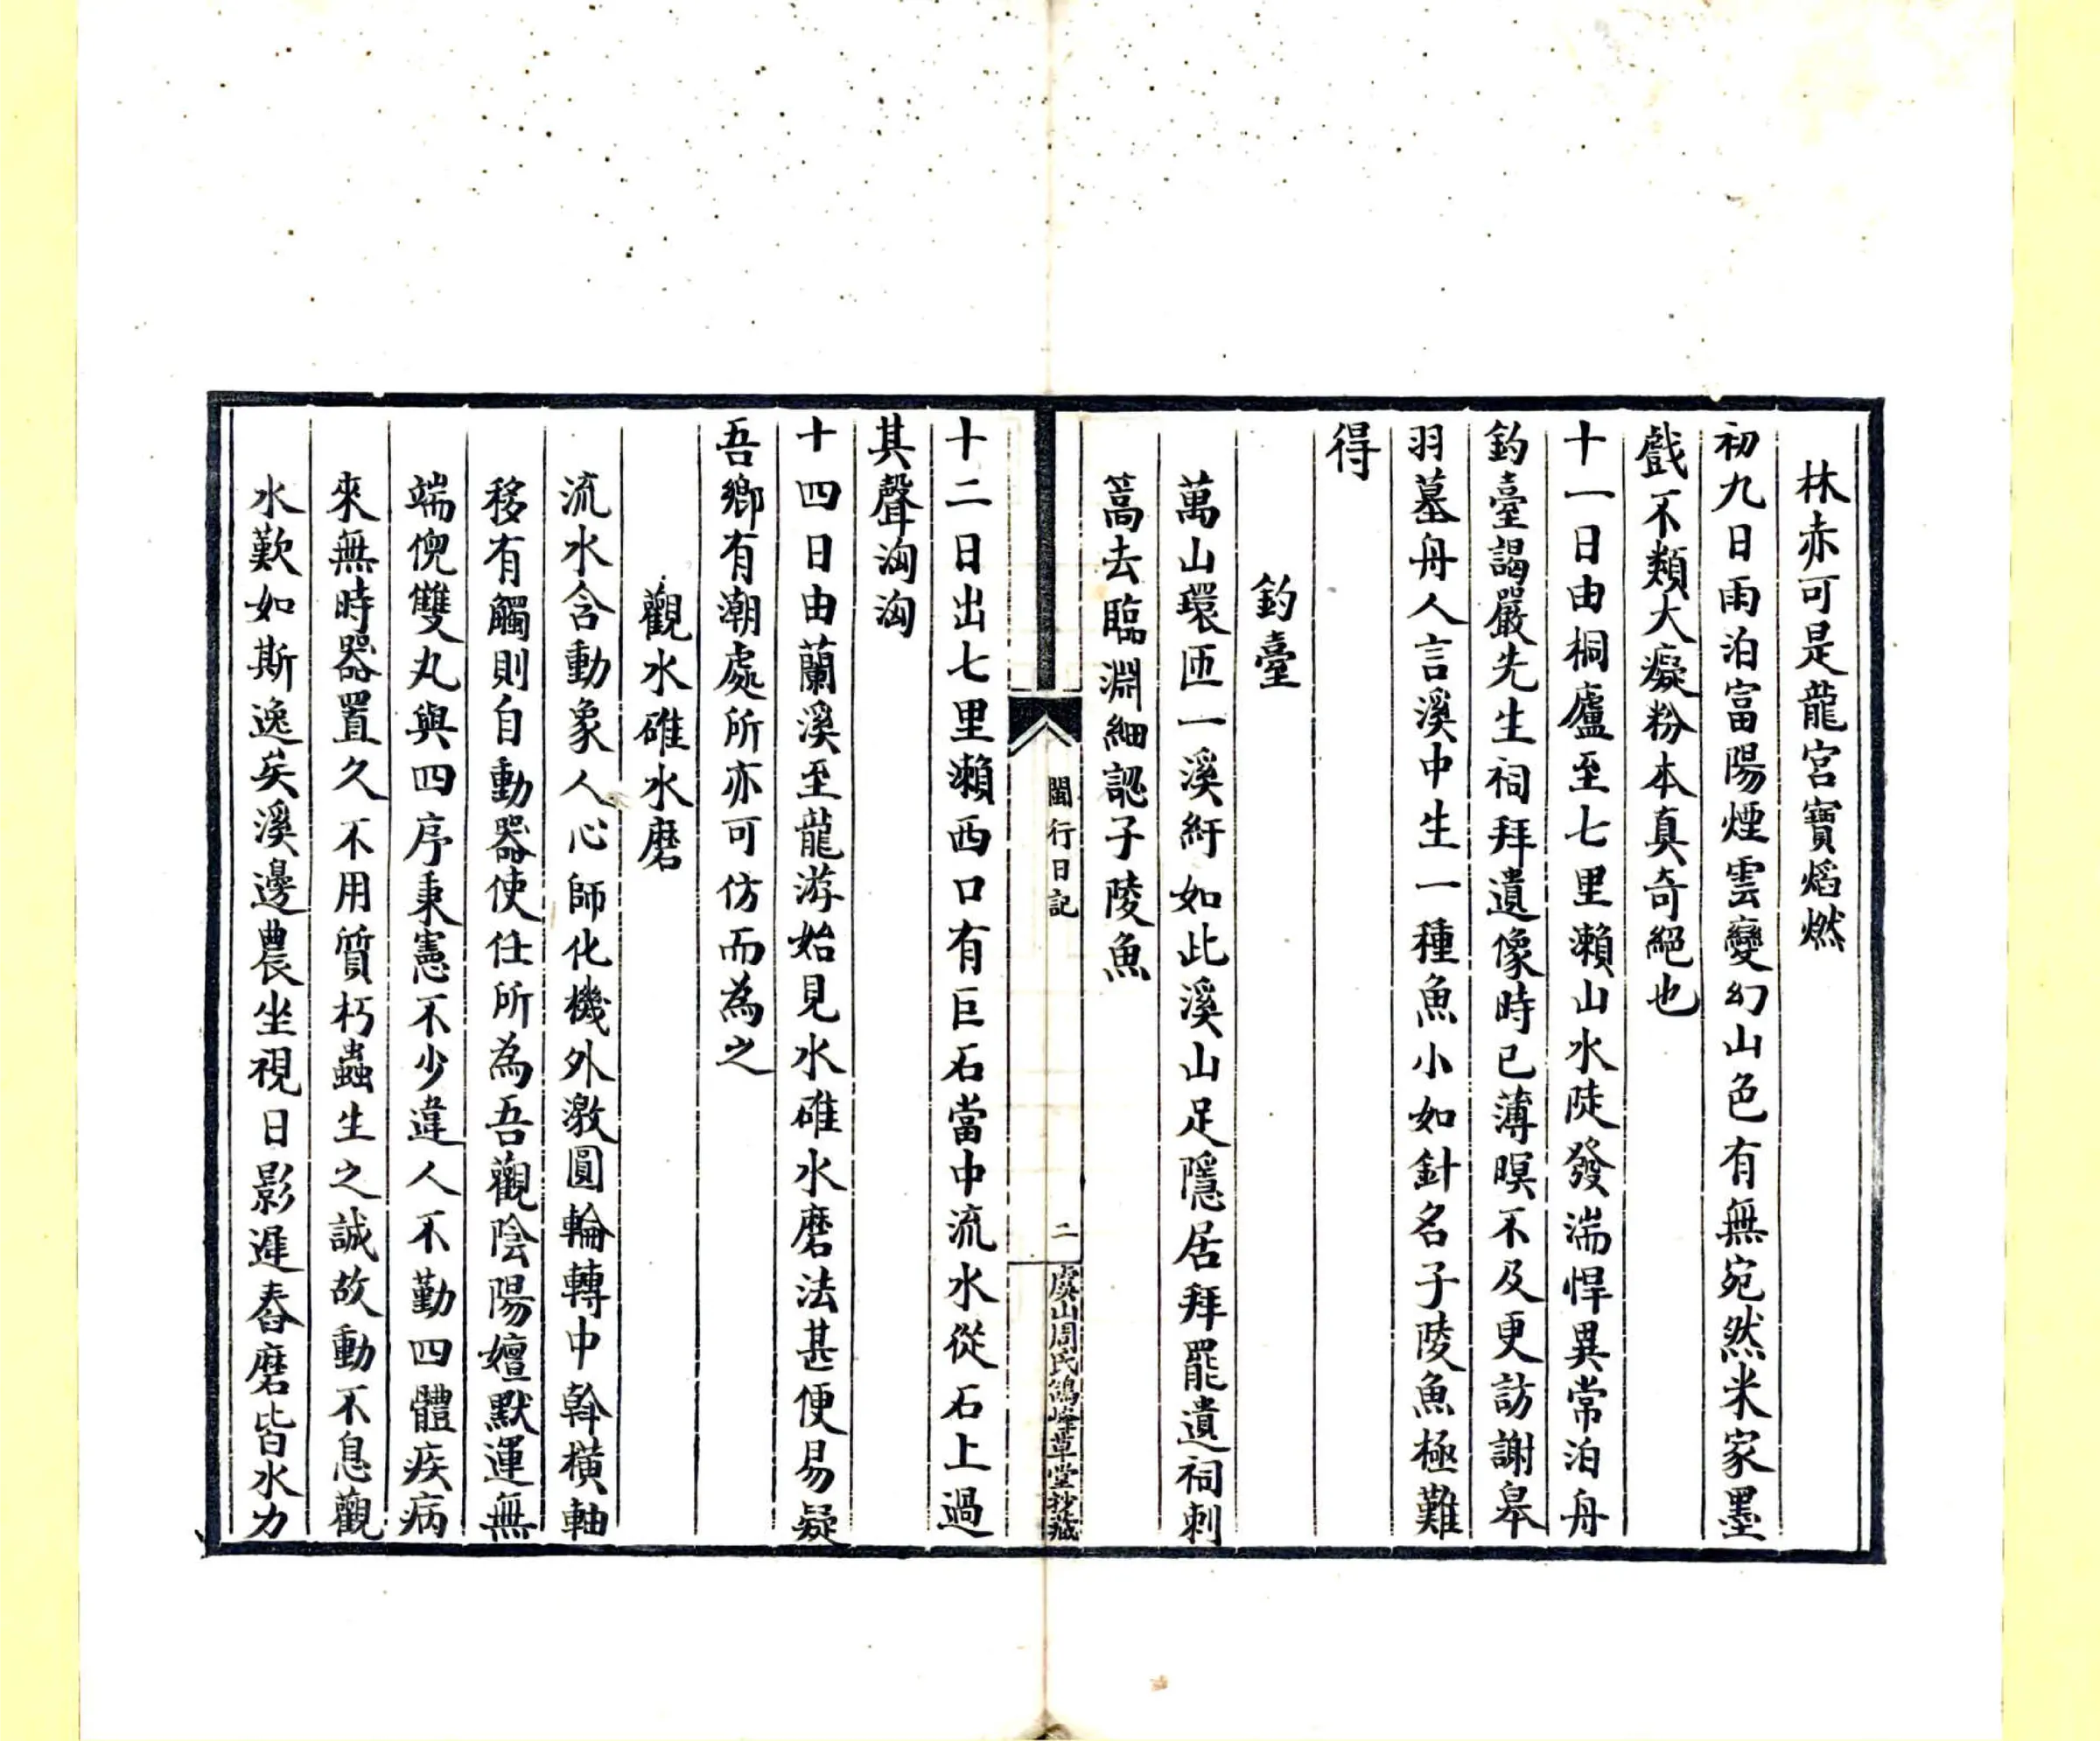 林赤可是龍宮寶焰燃
初九日雨泊富陽煙雲變幻山色有無宛然米家墨
戲不類大癡粉本真奇絕也
十一日由桐廬至七里瀨山水陡發湍悍異常泊舟
釣臺謁嚴先生祠拜遺像時已薄暝不及更訪謝皋
羽墓舟人言溪中生一種魚小如針名子陵魚極難
得
釣臺
萬山環匝一溪紆如此溪山足隱居拜罷遺祠刺
篙去臨淵細認子陵魚
閩行日記
二
虞山周氏鴿峰草堂抄藏
十二日出七里瀨西口有巨石當中流水從石上過
其聲洶洶
十四日由蘭溪至龍游始見水碓水磨法甚便易疑
吾鄉有潮處所亦可仿而為之
觀水碓水磨
流水含動象人心師化機外激圓輪轉中斡橫軸
移有觸則自動器使任所為吾觀陰陽嬗默運無
端倪雙丸與四序秉憲不少違人不勤四體疾病
來無時器置久不用質朽蟲生之誠故動不息觀
水歎如斯逸矣溪邊農坐視日影遲舂磨皆水力